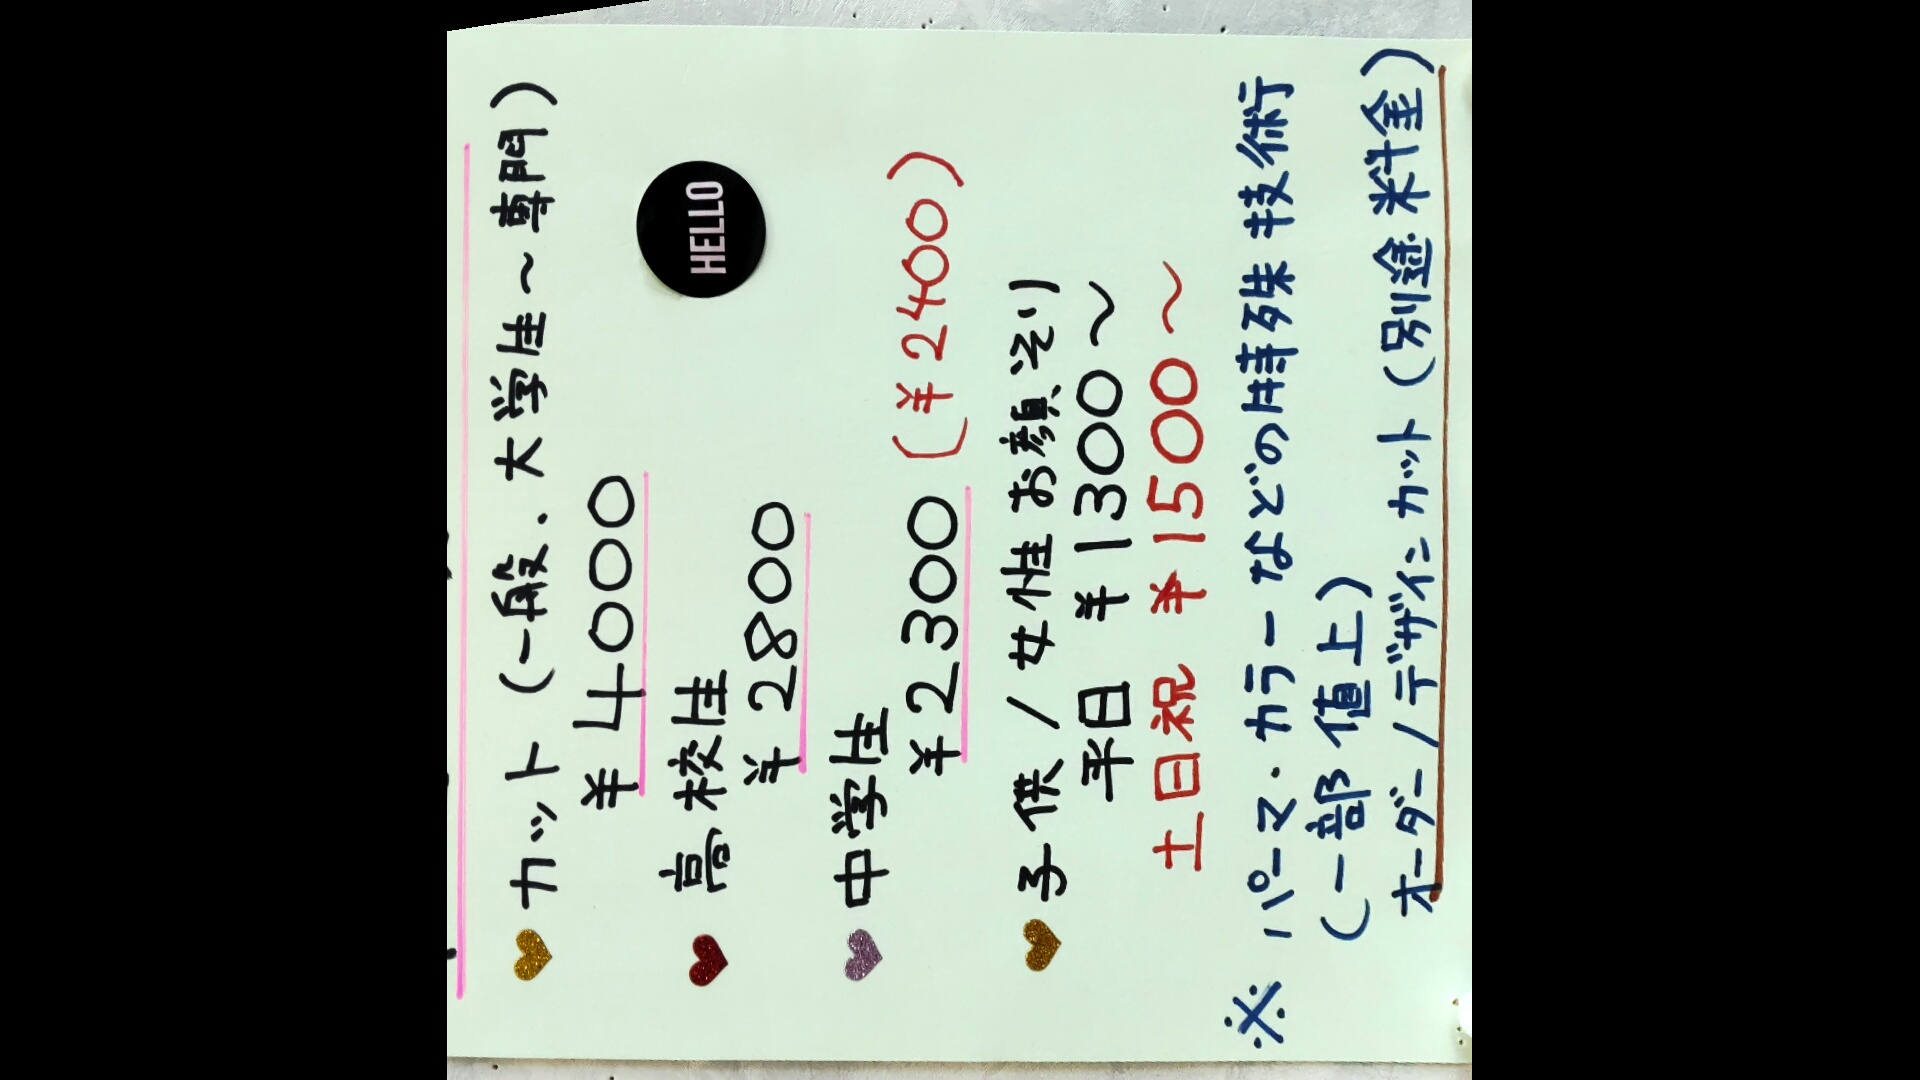 カット(一般、大学生～専門)
¥4000
HELLO
高校生
¥2800
中学生
¥2300(¥2400)
子供/女性お顔そり
平日 ¥1300～
土日祝 ¥1500～
※パーマ・カラーなどの特殊技術
(一部値上)
オーダー/デザインカット(別途料金)